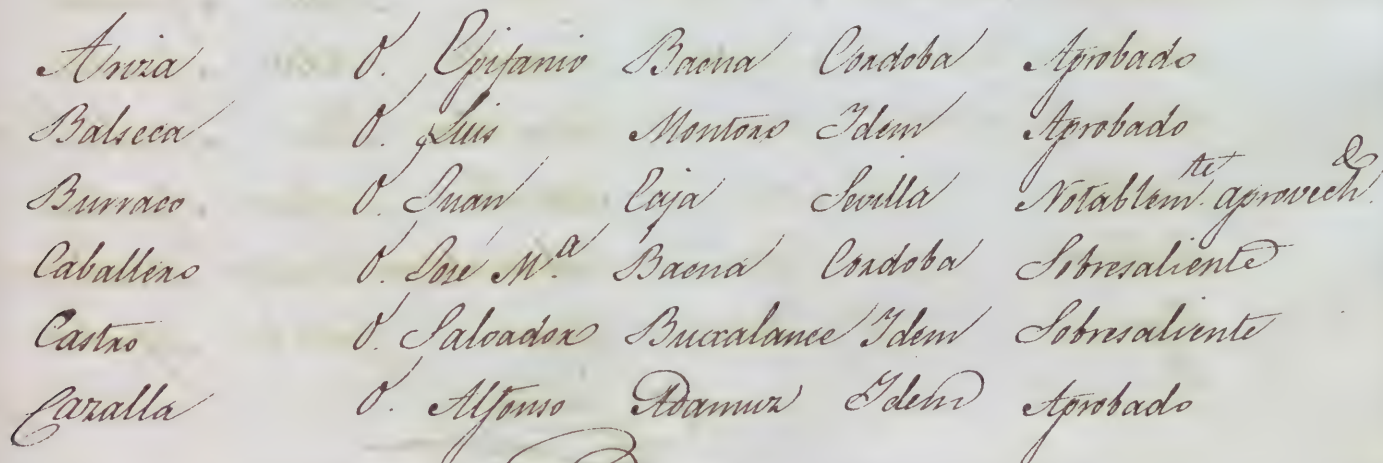 Ariza D. Epifanio Baena Cordoba Aprobado
Balseca D. Luis Montoro Idem Aprobado
Burraco D. Juan Écija Sevilla Notablem.te aprovech.do
Caballero D. José M.a Baena Cordoba Sobresaliente
Castro D. Salvador Bucalance Idem Sobresaliente
Cazalla D. Alfonso Adamuz Idem Aprobado